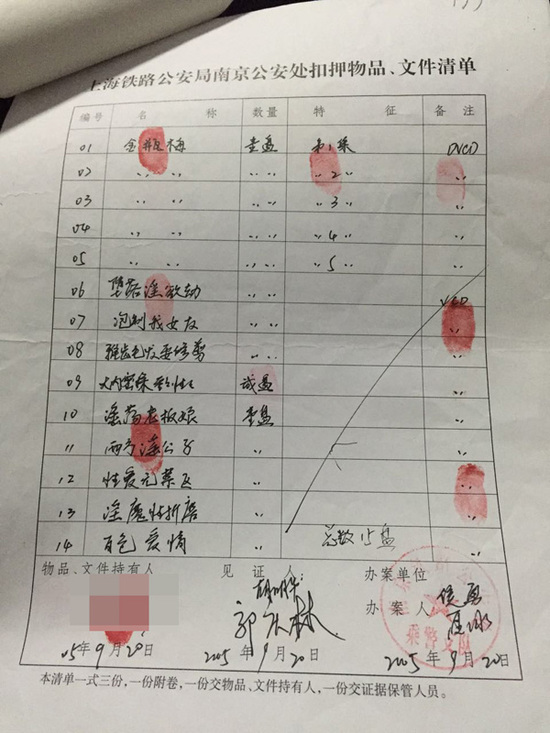 上海铁路公安局南京公安处扣押物品、文件清单
编号 名 称 数量 特 征 备 注
01 金瓶梅 壹盘 第1集 DVCD
02 〃 〃 〃 〃 〃2〃 〃
03 〃 〃 〃 〃 〃3〃 〃
04 〃 〃 〃 〃 〃4〃 〃
05 〃 〃 〃 〃 〃5〃 〃
06 堕落淫 〃 〃 VCD
07 泡制我女友 〃 〃
08 〃 〃
09 贰盘
10 淫荡老板娘 壹盘
11 西门淫公子 〃
12 性爱无禁区 〃
13 淫魔性折磨 〃
14 百色爱情 〃 总数15盘
物品、文件持有人 见 证 人 办案单位
办 案 人
05年9月20日 2005年9月20日 2005年9月20日
乘警支队
本清单一式三份，一份附卷，一份交物品、文件持有人，一份交证据保管人员。